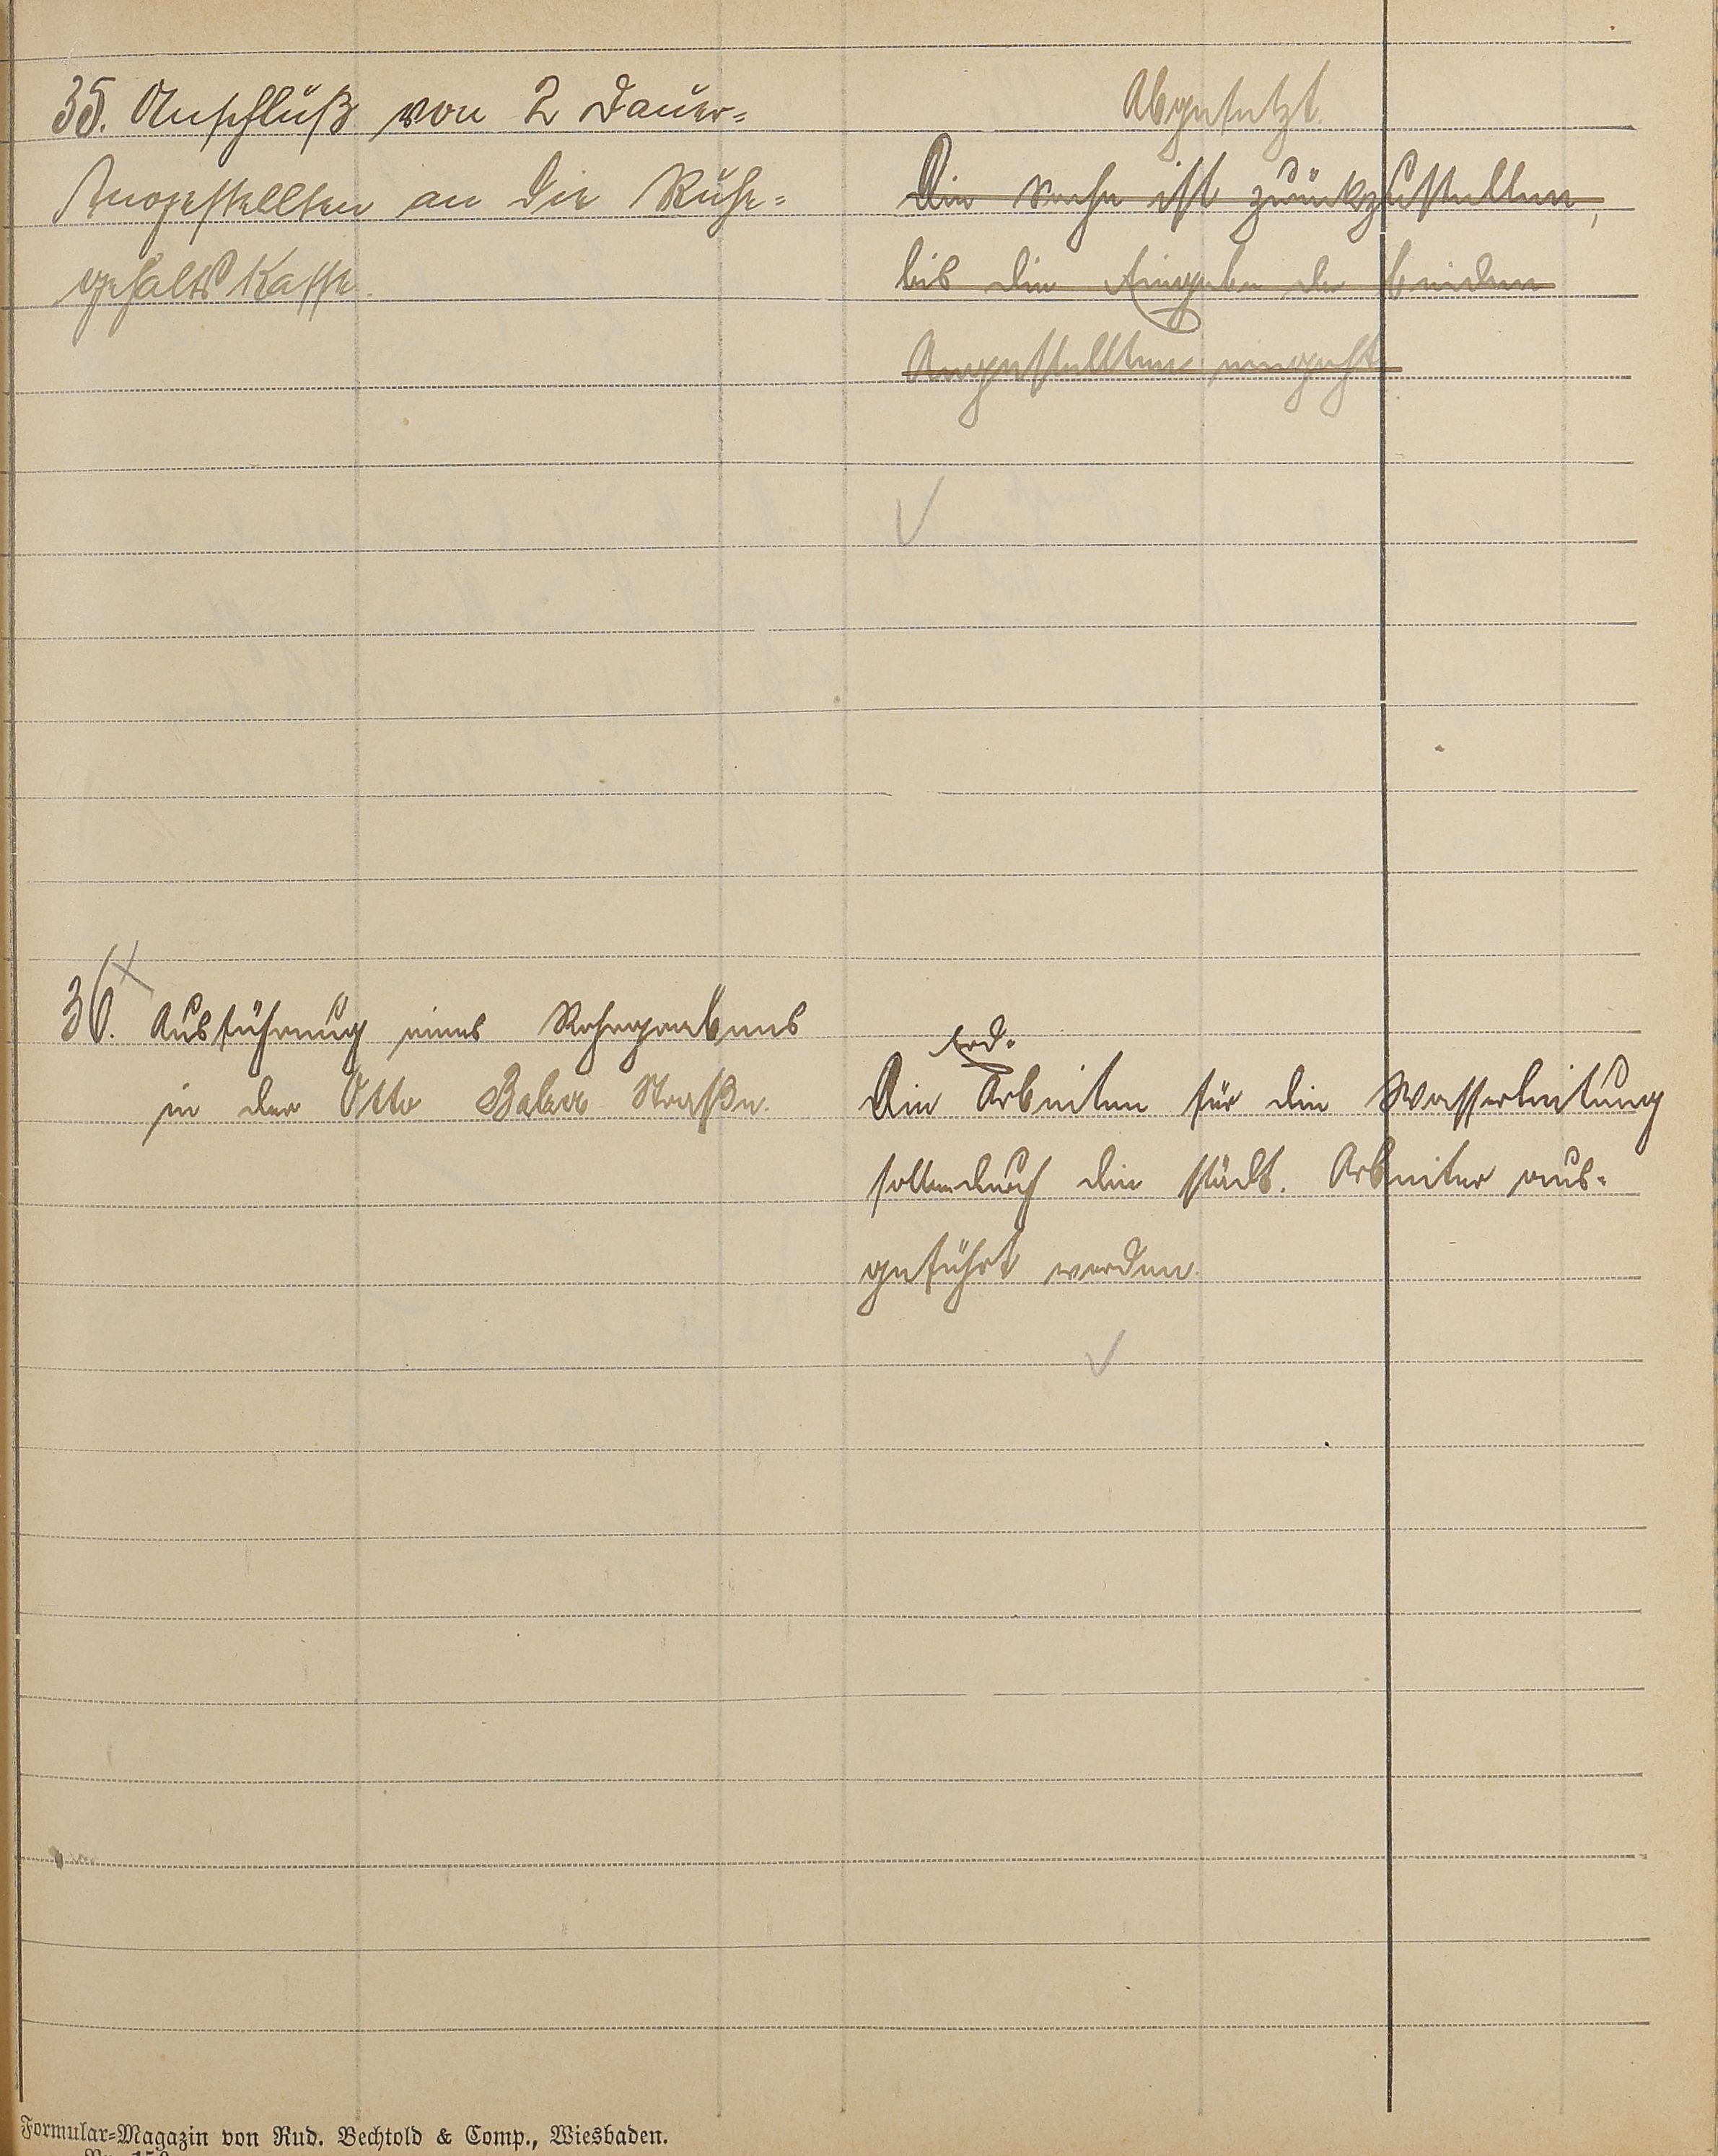 35. Anschluß von 2 Dauer-
Angestellten an die Ruhe-
gehalts Kasse.
Abgesetzt.
Die Sache ist zurückzustellen,
bis die Eingabe der beiden
Angestellten eingeht.
36. Ausführung eines Rohrgrabens
in der Otto Balzer Straße.
Erd-
Die Arbeiten für die Wasserleitung
sollen durch die städt. Arbeiter aus-
geführt werden.
Formular-Magazin von Rud. Bechtold & Comp., Wiesbaden.